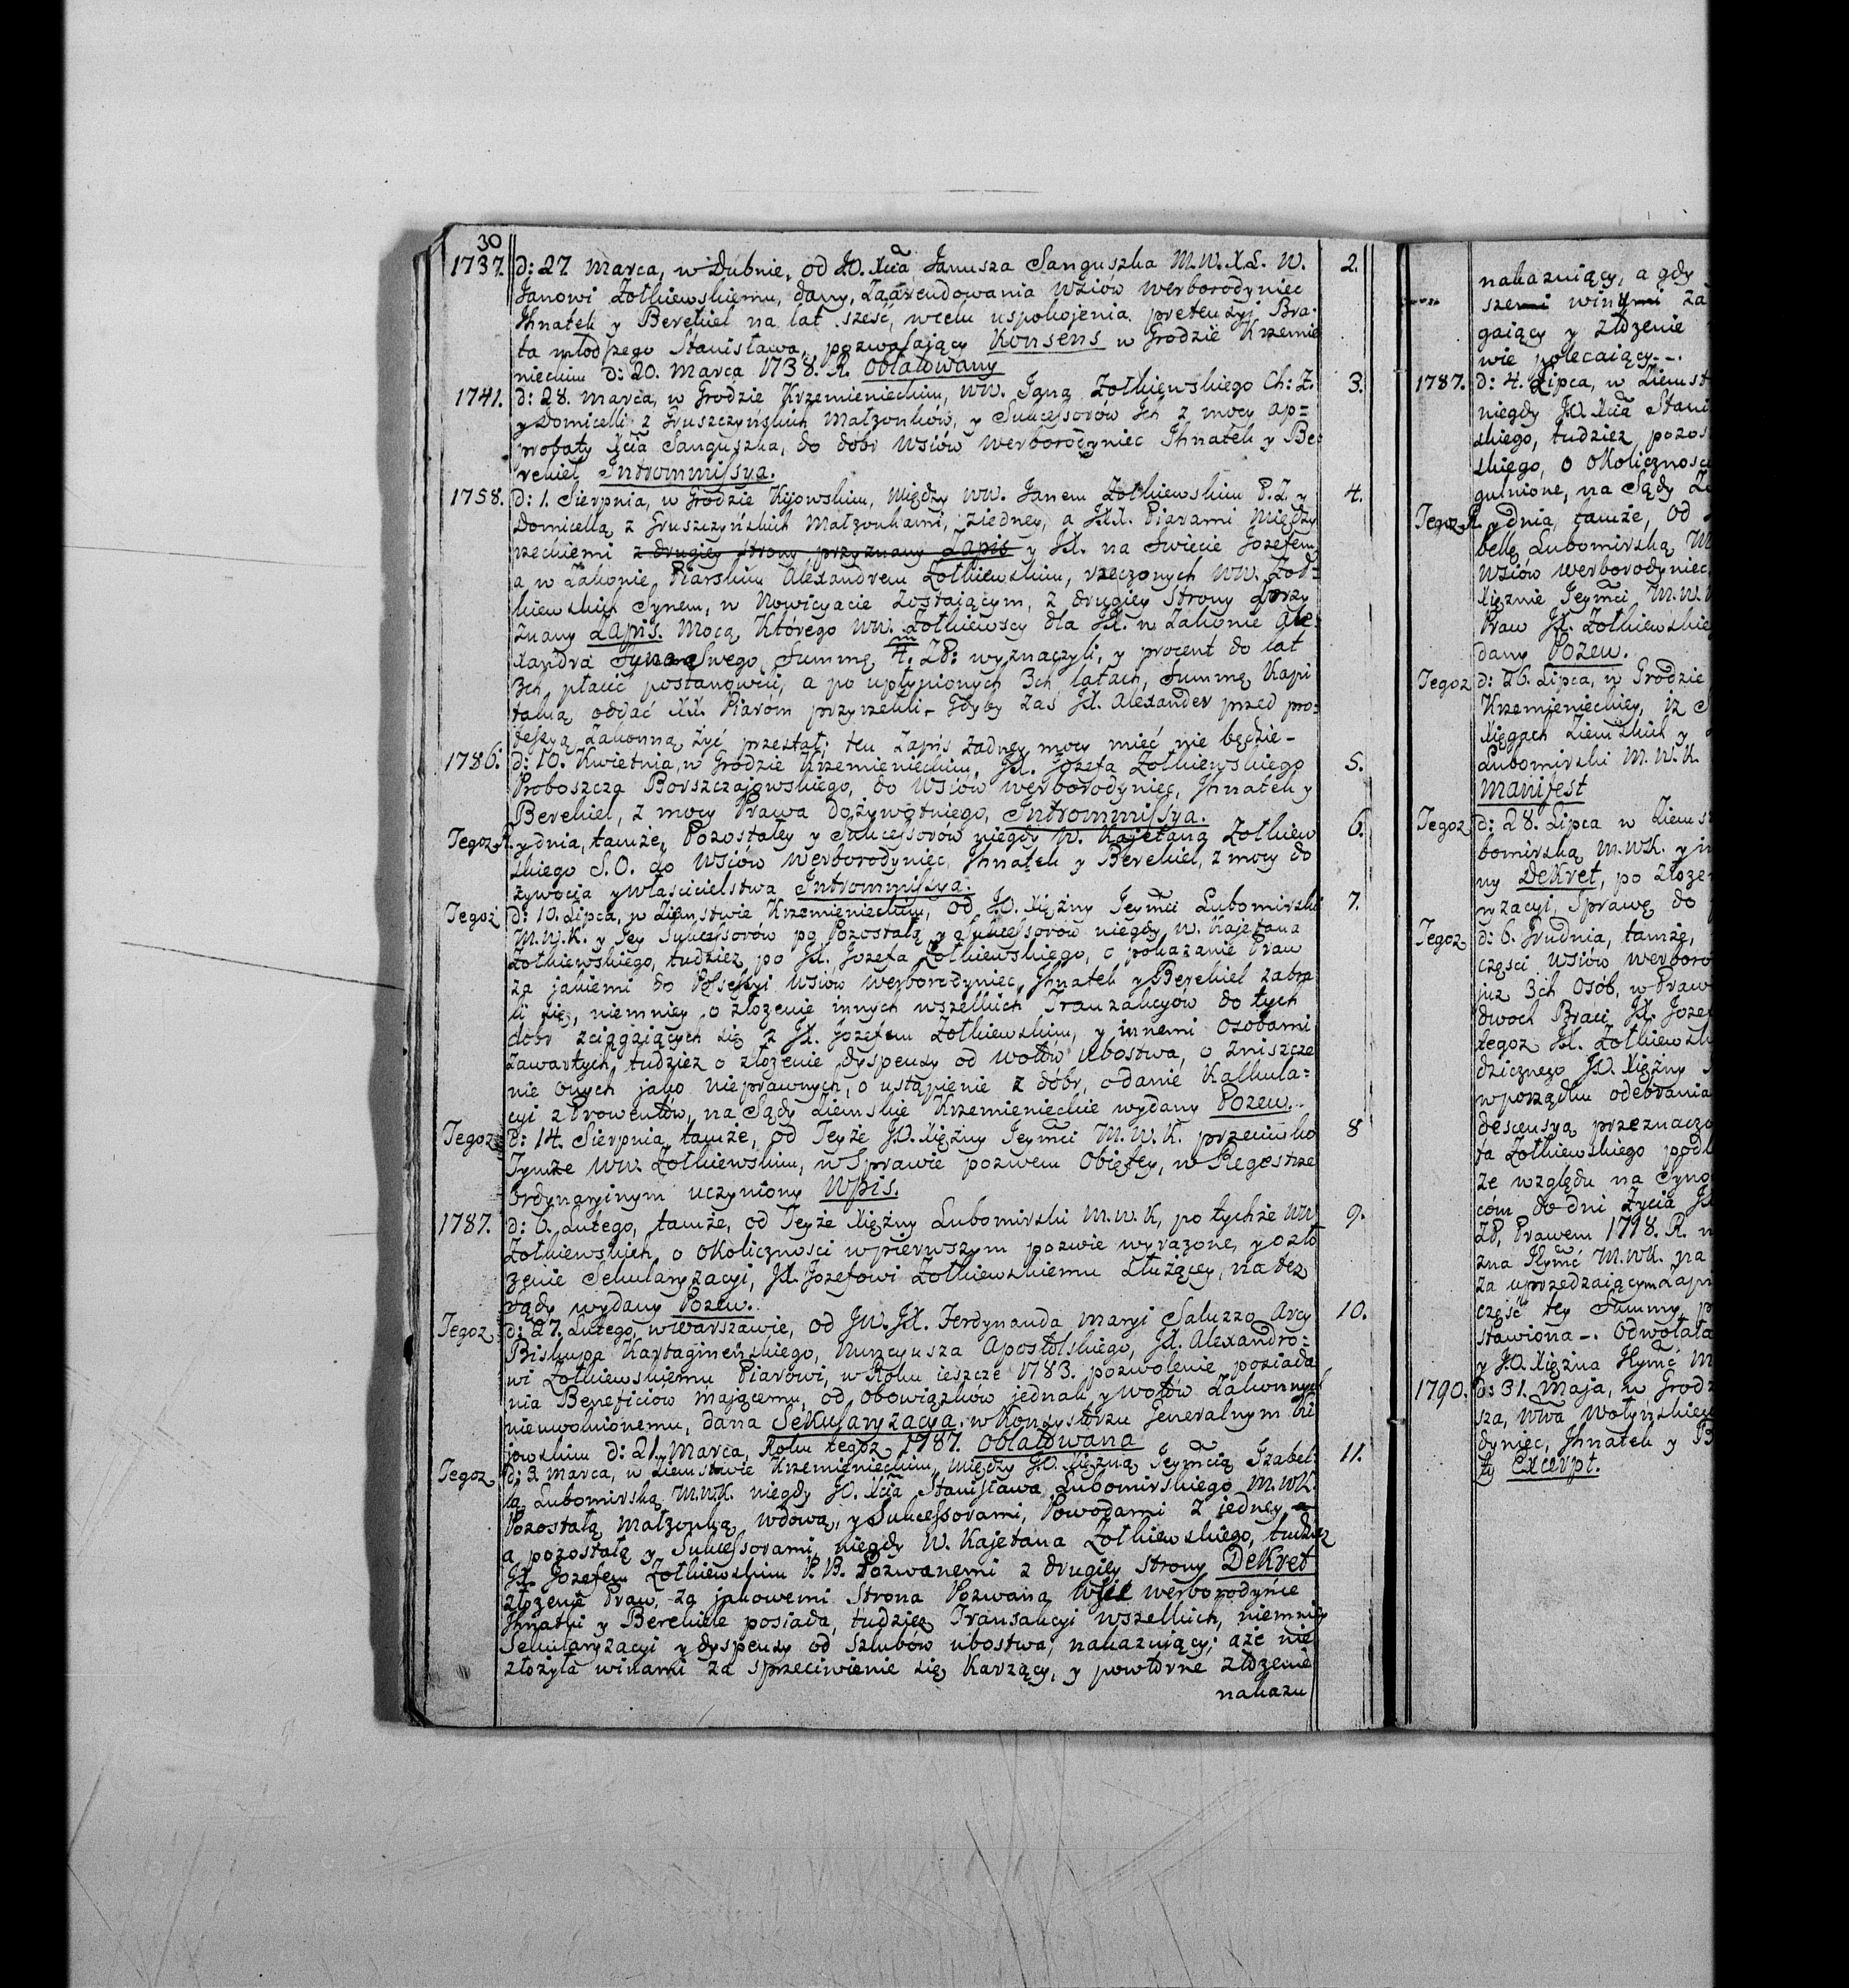 30
1737. d: 27 Marca, w Dubnie, od J.O. Xcia Janusza Sanguszka M.W.X.L. W. 2.
Janowi Zołkiewskiemu, dany, Zaarendowania Wsiów Werborodyniec
Jhnatek y Berekiel na lat sześć, wcelu uspokojenia pretensyi Bra-
ta młodszego Stanisława, pozwalający Konsens w Grodzie Krzemie
nieckim d: 20. Marca 1738. R. Oblatowany
1741. d: 28. Marca, w Grodzie Krzemienieckim, WW. Jana Zołkiewskiego Ch: Z. 3.
y Domicelli z Gruszczyńskich Małżonków, y Sukcessorów Ich z mocy ap=
probaty Xcia Sanguszka, do dóbr Wsiów Werborodyniec Jhnatek y Be=
rekiel Intromissya.
1758. d: 1. Sierpnia, w Grodzie Kijowskim, między WW. Janem Zołkiewskim P.Z. y 4.
Domicellą z Gruszczyńskich Małżonkami, ziedney, a XX. Piarami Między
rzeckiemi z drugiey strony przyznany Zapis y JX. na Swiecie Jozefem
a w Zakonie Piarskim Alexandrem Zołkiewskim, rzeczonych WW. Zoł=
kiewskich Synem, w Nowicyacie Zostającym, z drugiey Strony Przy
znany Zapis. Mocą Którego WW. Zołkiewscy dla JX. w Zakonie Ale
xandra Syna Swego, Summę 4/m. Zł: wyznaczyli, y procent do lat
3ch płacić postanowili, a po upłynionych 3ch latach, Summę Kapi
talną oddać XX. Piarom przyrzekli. Gdyby zaś JX. Alexander przed pro=
fessyą Zakonną żyć przestał: ten Zapis żadney mocy mieć nie będzie -
1786. d: 10. Kwietnia, w Grodzie Krzemienieckim, JX. Jozefa Zołkiewskiego 5.
Proboszcza Borszczajowskiego, do Wsiów Werborodyniec, Jhnatek y
Berekiel, z mocy Prawa dożywotniego, Intromissya.
Tegoż R. y dnia, tamże, Pozostałey y Sukcessorów niegdy W. Kajetana Zołkiew 6.
skiego S.O. do Wsiów Werborodyniec, Jhnatek y Berekiel, z mocy do
żywocia y właścicielstwa Intromissya.
Tegoż d: 10. Lipca, w Ziemstwie Krzemienieckim, Od J.O. Xiężny Jeymci Lubomirski 7.
M.W.K. y Jey Sukcessorów po Pozostałą y Sukcessorów niegdy W. Kajetana
Zołkiewskiego, tudzież po JX. Jozefa Zołkiewskiego, o pokazanie Praw
za jakiemi do Possessyi Wsiów Werborodyniec, Jhnatek y Berekiel zabra
li się, niemniey o złożenie innych wszelkich Tranzakcyów do tych
dóbr zciągających się z JX. Jozefem Zołkiewskim, y innemi Osobami
Zawartych, tudzież o złożenie dyspensy od wotów Ubostwa, o zniszcze
nie onych jako nieprawnych, o ustąpienie z dóbr, o danie Kalkula=
cyi z Prowentów, na Sądy Ziemskie Krzemienieckie wydany Pozew.
Tegoż d: 14. Sierpnia, tamże, od Teyże J.O. Xiężny Jeymci M.W.K. przeciwko 8
Tymże WW. Zołkiewskim, w Sprawie pozwem Obiętey, w Regestrze
Ordynaryinym uczyniony Wpis.
1787. d: 6. Lutego, tamże, od Teyże Xiężny Lubomirski M.W.K, po tychże WW 9.
Zołkiewskich, o Okoliczności wpierwszym pozwie wyrażone, y o zło
żenie Sekularyzacyi, JX. Jozefowi Zołkiewskiemu Służącey, na też
Sądy wydany Pozew.
Tegoż d: 27. Lutego, w Warszawie, od JW. JX. Ferdynanda Maryi Saluzzo Arcy 10.
Biskupa Kartagineńskiego, Nuncyusza Apostolskiego, JX. Alexandro=
wi Zołkiewskiemu Piarowi, w Roku ieszcze 1783. pozwolenie posiada
nia Beneficiów mającemu, od obowiązków jednak y wotów Zakonnych
nieuwolnionemu, dana Sekularyzacya, w Konsystorzu Generalnym Ki
jowskim d: 21. Marca, Roku tegoż 1787. Oblatowana
Tegoż d: 3. Marca, w Ziemstwie Krzemienieckim, między J.O. Xiężną Jeymcią Izabel- 11.
lą Lubomirską M.W.K. niegdy J.O. Xcia Stanisława Lubomirskiego M.W.K.
Pozostałą Małżonką Wdową, y Sukcessorami, Powodami z jedney
a pozostałą y Sukcessorami niegdy W. Kajetana Zołkiewskiego, tudzież
JX. Jozefem Zołkiewskim P.B. Pozwanemi z drugiey strony Dekret
złożenie Praw, za jakowemi Strona Pozwana Wsie Werborodyńce
Jhnatki y Berekiele posiada, tudzież Transakcyi wszelkich, niemniey
Sekularyzacyi y dyspensy od szlubów ubostwa, nakazujący; aże nie
złożyła winami za sprzeciwienie się karzący, y powtórne złożenie
nakazu
nakazuiący, a gdy
szemi winymi za
gaiący y złożenie
wie polecaiący.
1787. d: 4. Lipca, w Ziemst
niegdy J.O. Xcia Stani
skiego, tudzież pozos
skiego, o Okolicznosc
gulnione, na Sądy Ze
Tegoż R. y dnia, tamże, od
bellę Lubomirską
Wsiów Werborodyniec
Xiężnie Jeymci M.W.
Praw JX. Zołkiewskie
dany Pozew.
Tegoż d: 26. Lipca, w Grodzie
Krzemienieckiey, iż
Xięgach Ziemskich y
Lubomirski M.W.K.
Manifest
Tegoż d: 28. Lipca w Ziems
bomirską M.W.K. y
ny Dekret, po złoże
ryzacyi, Sprawę do
Tegoż d: 6. Grudnia, tamże,
części Wsiów Werboro
już 3ch Osób, w Praw
dwoch Braci JX. Jozef
tegoż JX. Zołkiewsk
dzicznego J.O. Xiężny
wporządku odebrania
descensyą przeznacz
ta Zołkiewskiego pod
ze względu na Syno
ców do dni życia JX
Zł, Prawem 1778. R.
żna Jeymć M.W.K. na
za uprzedzaiącym Zapi
część tey Summy
stawiona -. Odwołała
y J.O. Xiężna Jeymć M
1790. d: 31. Maja, w Grodz
sza, Wwa Wołyńskieg
dyniec, Jhnatek y B
ty Excerpt.